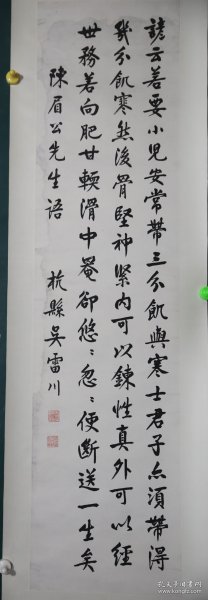 諺云若要小兒安常帶三分飢與寒士君子亦須帶得
幾分飢寒然後骨堅神緊內可以鍊性真外可以經
世務若向肥甘輭滑中菴卻悠〻忽〻便斷送一生矣
陳眉公先生語
杭縣吳雷川